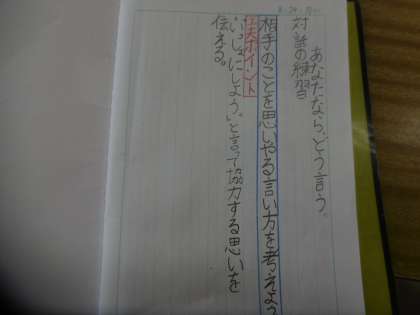 あなたなら、どう言う。
対話の練習
相手のことを思いやる言い方を考えよう
工夫ポイント
「いっしょにしよう。」と言って協力する思いを
伝える。